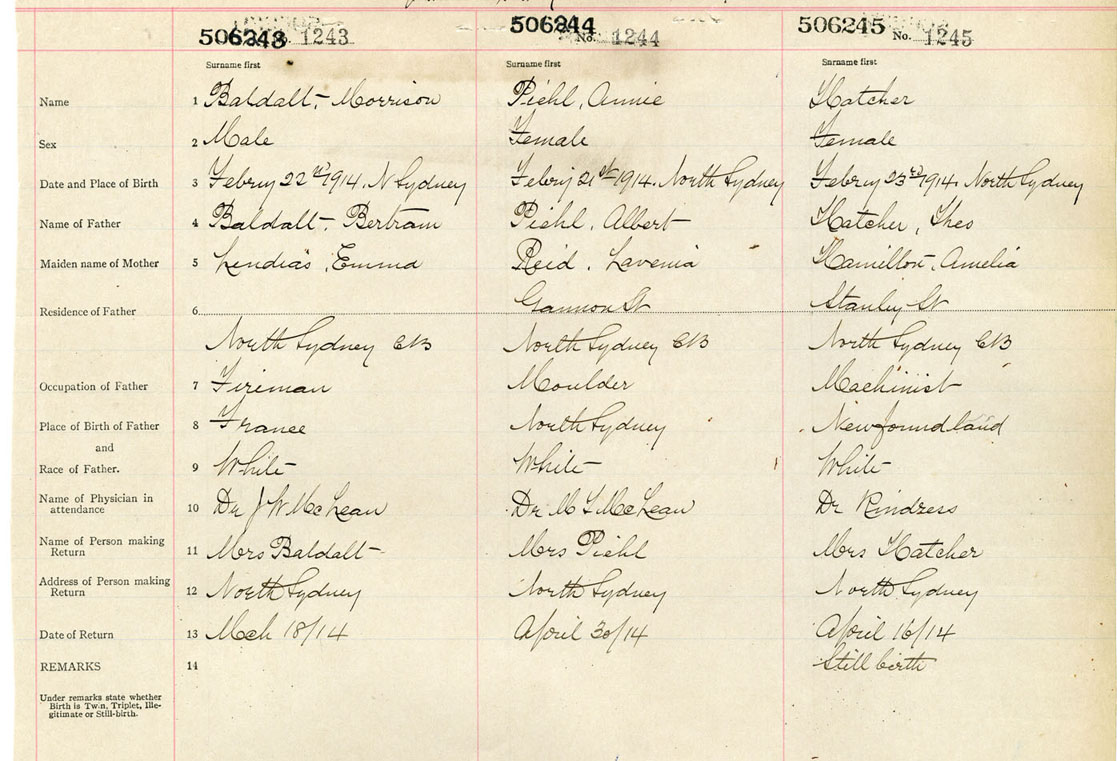 506243 No. 1243 506244 No. 1244 506245 No. 1245
Surname first Surname first Surname first
Name 1 Baldalt, Morrison Piehl, Annie Hatcher
Sex 2 Male Female Female
Date and Place of Birth 3 Febry 22nd 1914. N Sydney Febry 21st 1914. North Sydney Febry 23rd 1914. North Sydney
Name of Father 4 Baldalt, Bertram Piehl, Albert Hatcher, Thos
Maiden name of Mother 5 Emma Reid, Lavenia Hamilton, Amelia
Residence of Father 6 Gannon St Stanley St
North Sydney CB North Sydney CB North Sydney CB
Occupation of Father 7 Fireman Moulder Machinist
Place of Birth of Father 8 France North Sydney Newfoundland
and
Race of Father. 9 White White White
Name of Physician in attendance 10 Dr J W McLean Dr McLean Dr Rindress
Name of Person making Return 11 Mrs Baldalt Mrs Piehl Mrs Hatcher
Address of Person making Return 12 North Sydney North Sydney North Sydney
Date of Return 13 Mch 18/14 April 30/14 April 16/14
REMARKS 14 Still birth
Under remarks state whether
Birth is Twin, Triplet, Ille-
gitimate or Still-birth.